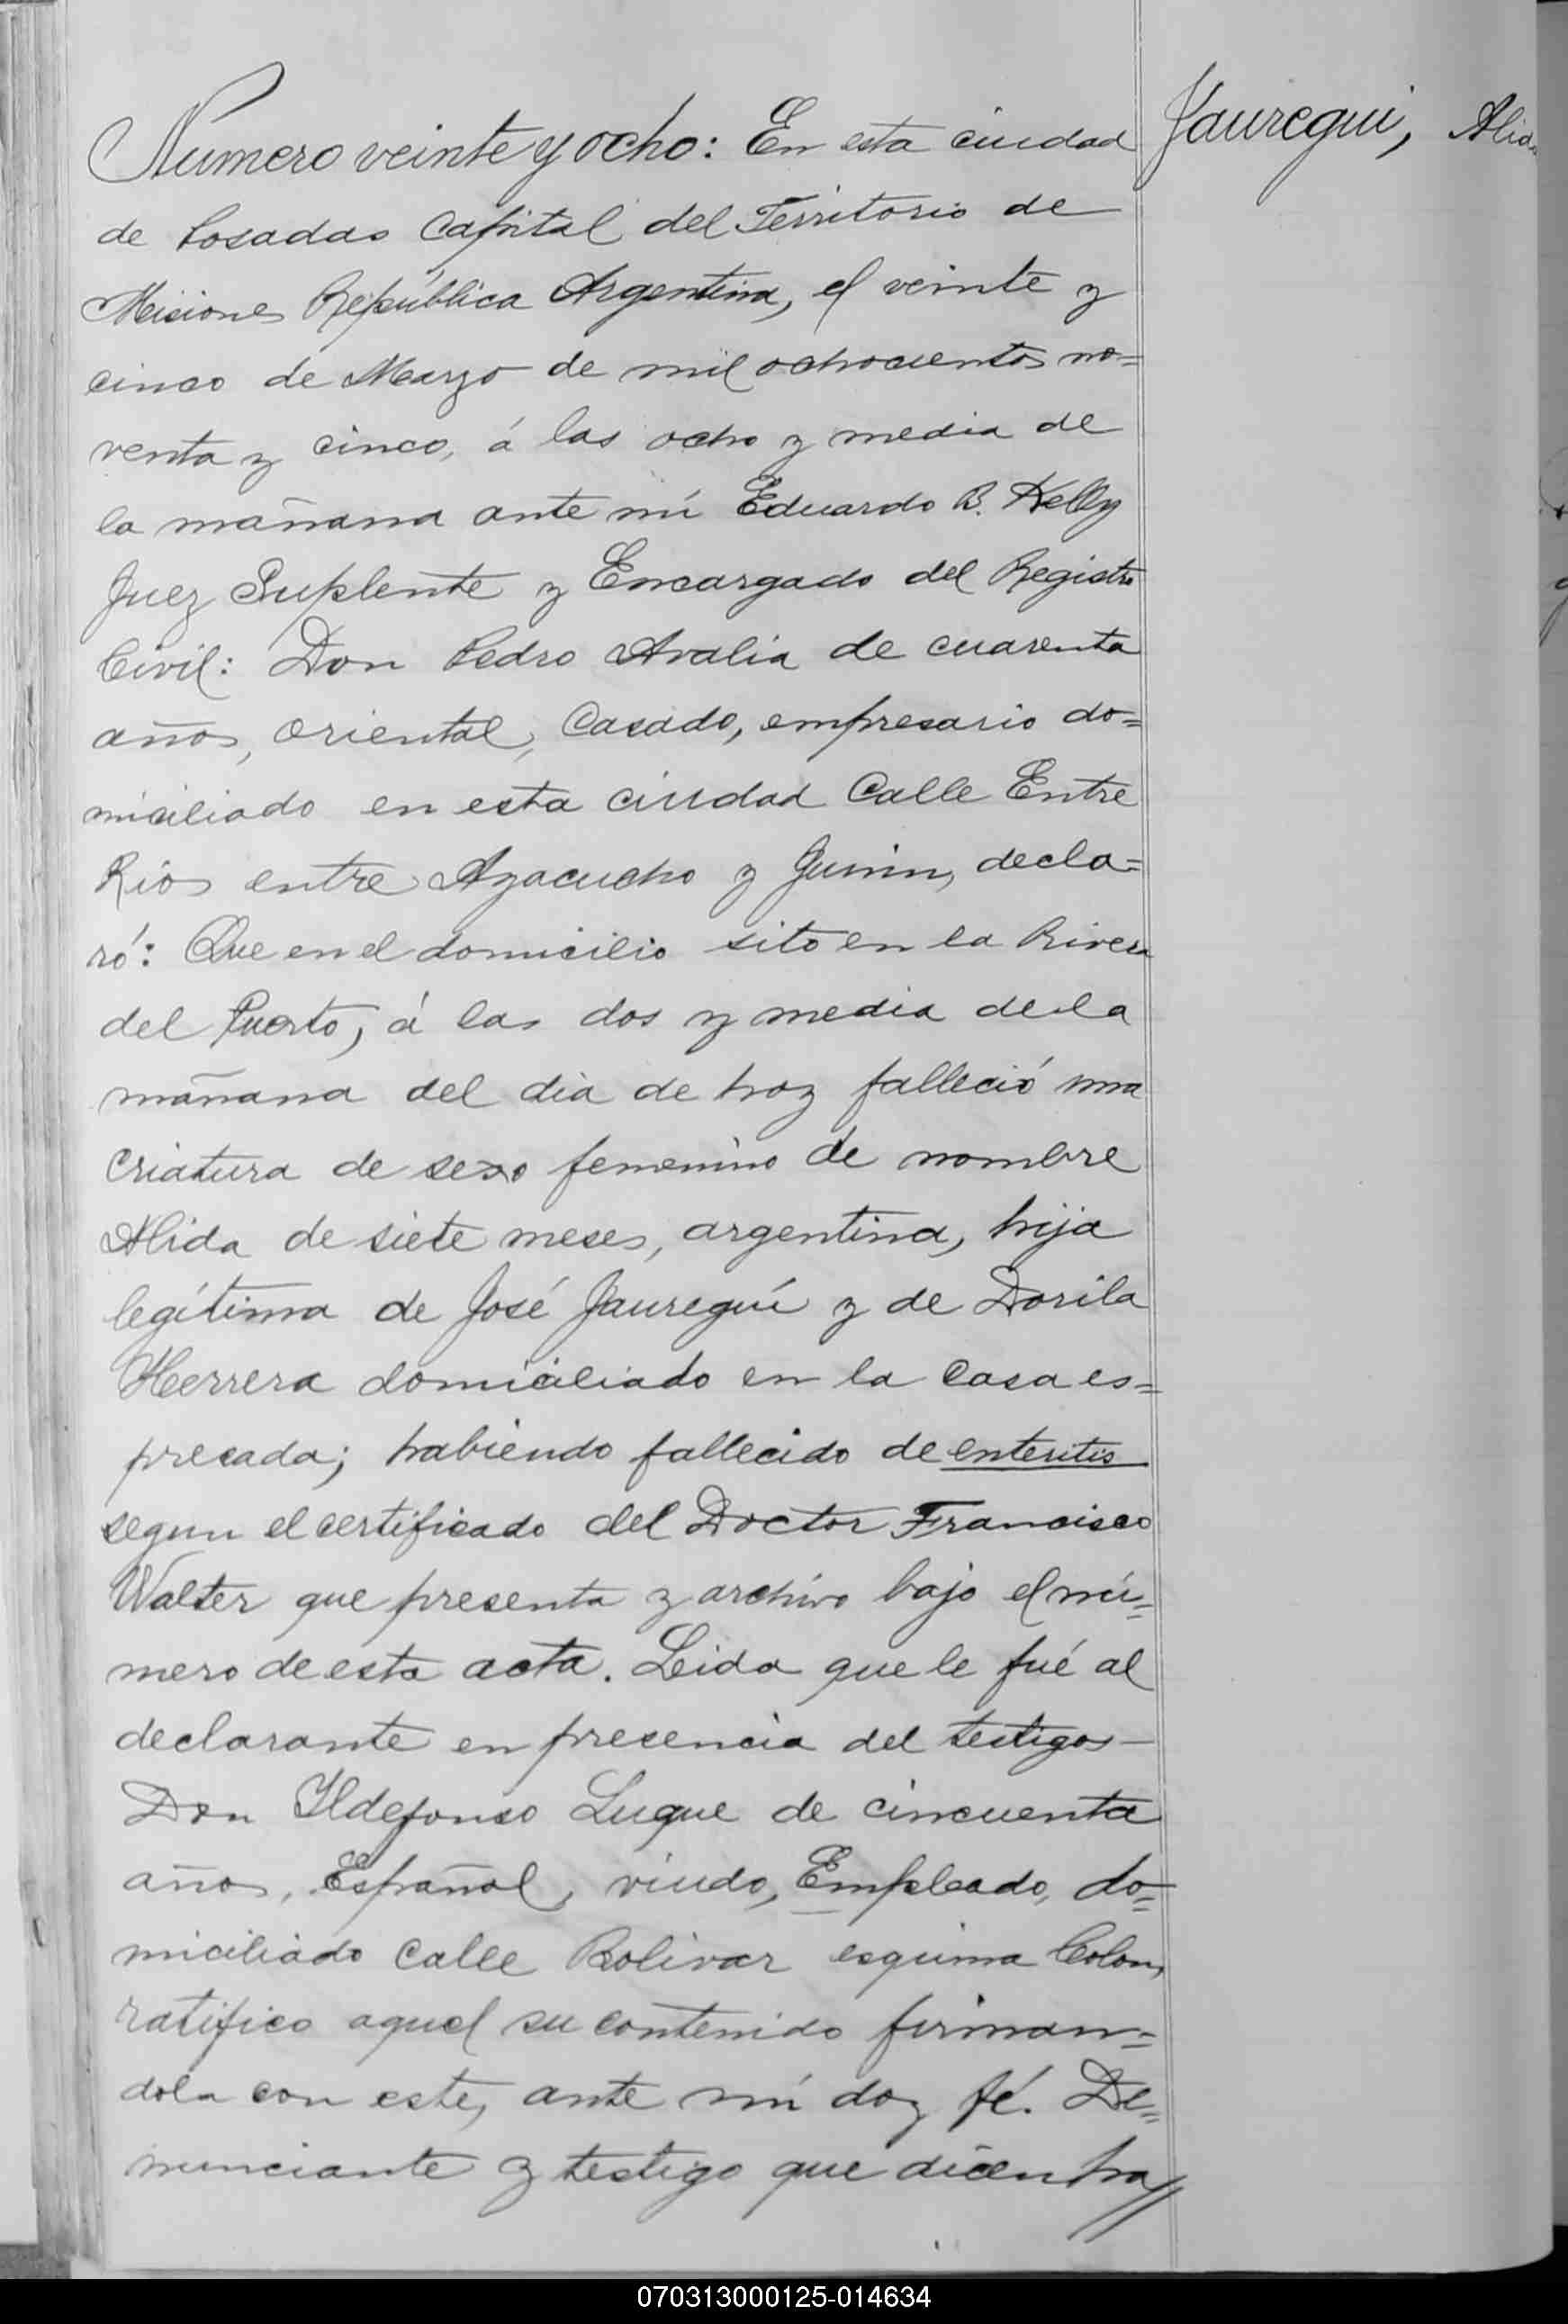 Numero veinte y ocho: En esta ciudad
Jauregui, Alida
de Posadas Capital del Territorio de
Misiones República Argentina, el veinte y
cinco de Marzo de mil ochocientos no=
venta y cinco, á las ocho y media de
la mañana ante mí Eduardo B. Kelly
Juez Suplente y Encargado del Registro
Civil: Don Pedro Avalia de cuarenta
años, oriental, Casado, empresario do=
miciliado en esta ciudad Calle Entre
Rios entre Ayacucho y Junin, decla=
ró: Que en el domicilio sito en la Rivera
del Puerto, á las dos y media de la
mañana del dia de hoy falleció una
criatura de sexo femenino de nombre
Alida de siete meses, argentina, hija
legítima de José Jauregui y de Dorila
Herrera domiciliado en la casa es=
presada; habiendo fallecido de enteritis
segun el certificado del Doctor Francisco
Walter que presenta y archivo bajo el nú=
mero de esta acta. Leida que le fué al
declarante en presencia del testigos
Don Ildefonso Luque de cincuenta
años, Español, viudo, Empleado, do=
miciliado calle Bolivar esquina Colon,
ratifico aquel su contenido firman=
dola con este, ante mí doy fé. De=
nunciante y testigo que dicen ha//
070313000125-014634